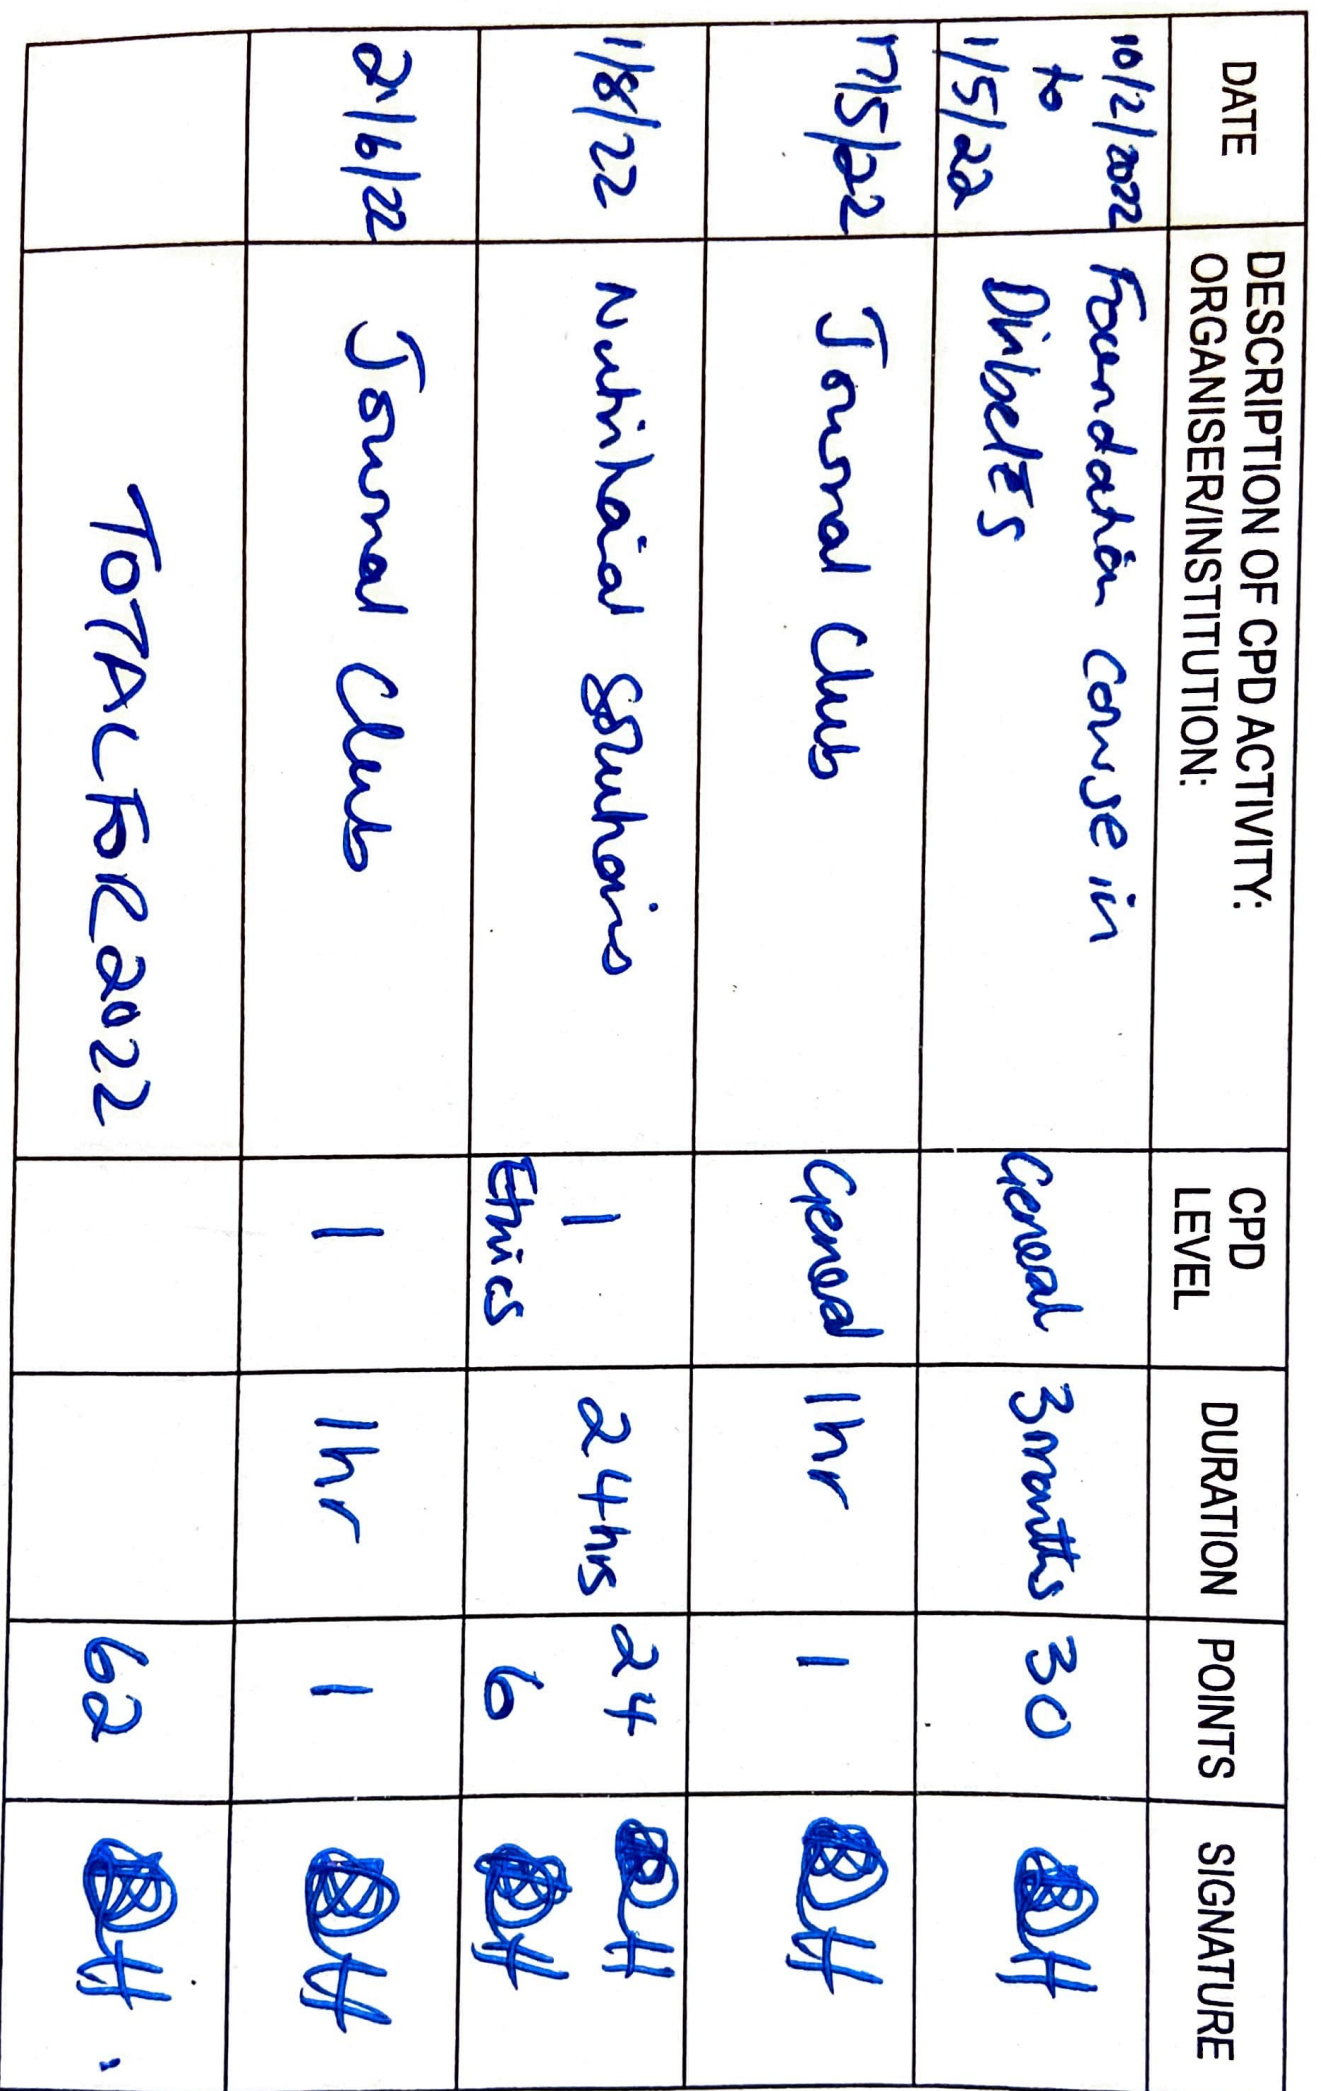 DATE
DESCRIPTION OF CPD ACTIVITY:
ORGANISER/INSTITUTION:
CPD
LEVEL
DURATION
POINTS
SIGNATURE
10/2/2022
to
1/5/22
Foundation Course in
DiabetES
General
3months
30
17/5/22
Journal Club
General
1hr
1
1/8/22
Nutritional Solutions
1
Ethics
24hrs
24
6
21/6/22
Journal Club
1
1hr
1
TOTAL FOR 2022
62